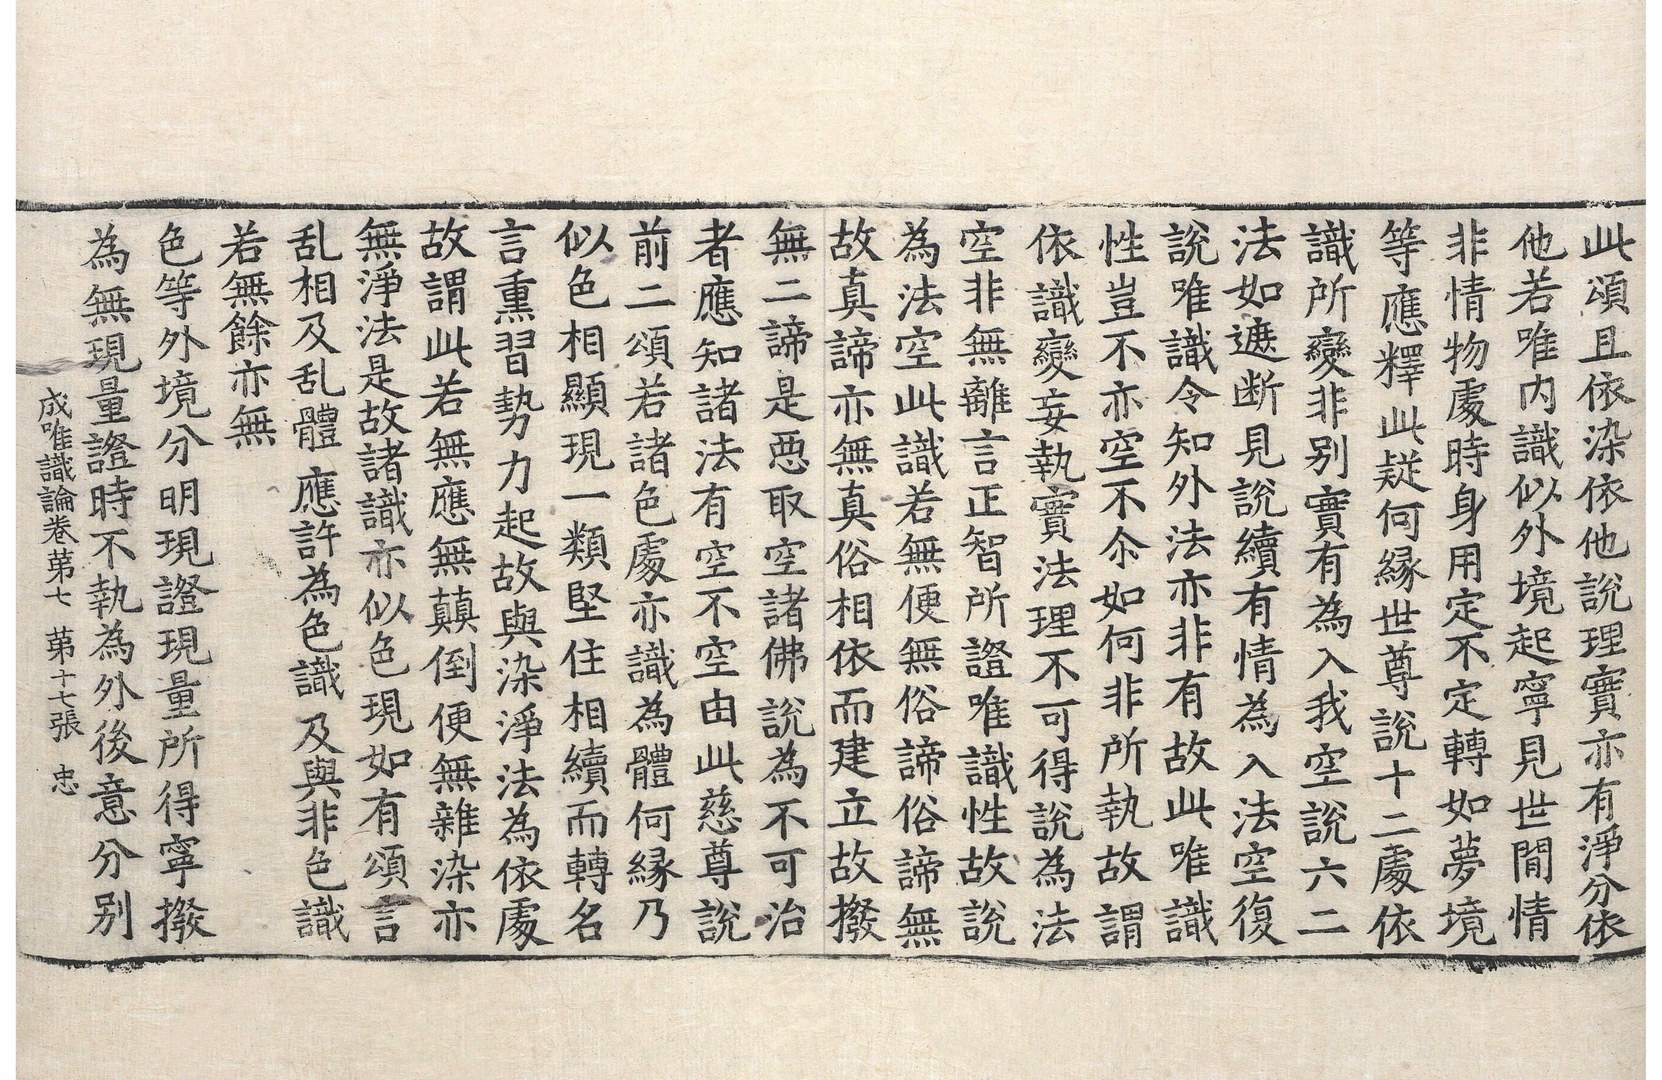 此頌且依染依他說理實亦有淨分依
他若唯内識似外境起寧見世閒情
非情物處時身用定不定轉如夢境
等應釋此疑何縁世尊說十二處依
識所變非别實有為入我空說六二
法如遮断見說續有情為入法空復
說唯識令知外法亦非有故此唯識
性豈不亦空不尒如何非所執故謂
依識變妄執實法理不可得說為法
空非無離言正智所證唯識性故說
為法空此識若無便無俗諦俗諦無
故真諦亦無真俗相依而建立故撥
無二諦是惡取空諸佛說為不可治
者應知諸法有空不空由此慈尊說
前二頌若諸色處亦識為體何縁乃
似色相顯現一類堅住相續而轉名
言熏習勢力起故與染淨法為依處
故謂此若無應無顛倒便無雜染亦
無淨法是故諸識亦似色現如有頌言
乱相及乱體應許為色識及與非色識
若無餘亦無
色等外境分明現證現量所得寧撥
為無現量證時不執為外後意分别
成唯識論卷苐七 苐十七張 忠